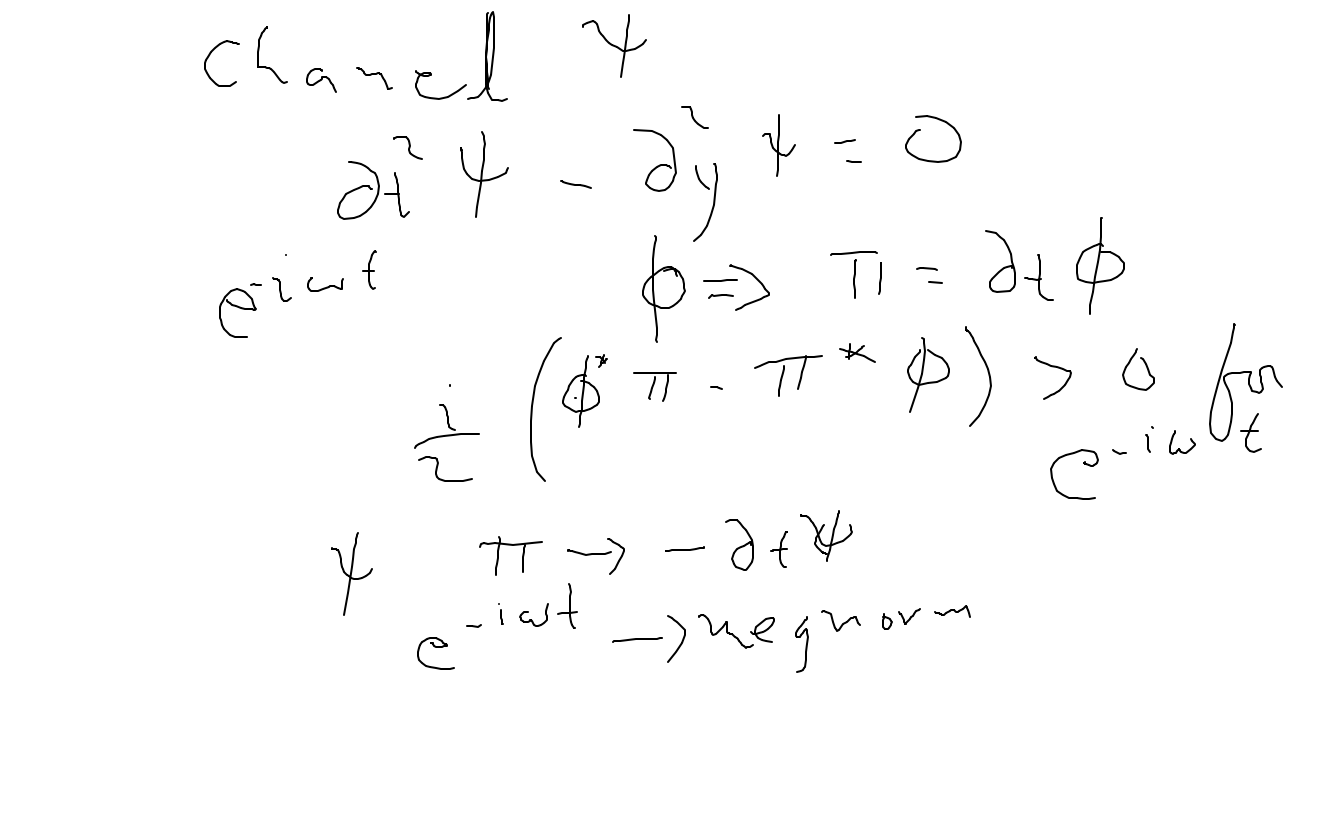 Chanel ψ
∂t² ψ - ∂y² ψ = 0
e^{-iωt} ϕ ⇒ π = ∂t ϕ
i/2 (ϕ* π - π* ϕ) > 0 for e^{-iωt}
ψ π → -∂t ψ
e^{-iωt} → neg norm